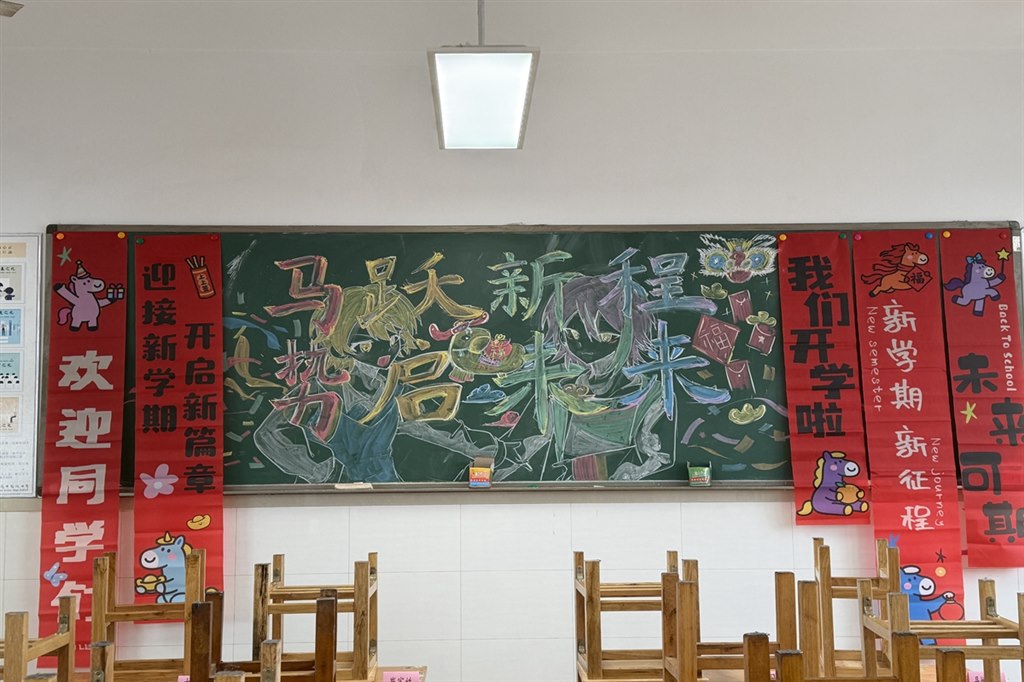 欢迎同学们
上上签
迎接新学期
开启新篇章
马跃新程
势启未来
福
我们开学啦
福
新学期 新征程
New semester
New journey
Back to school
未来可期